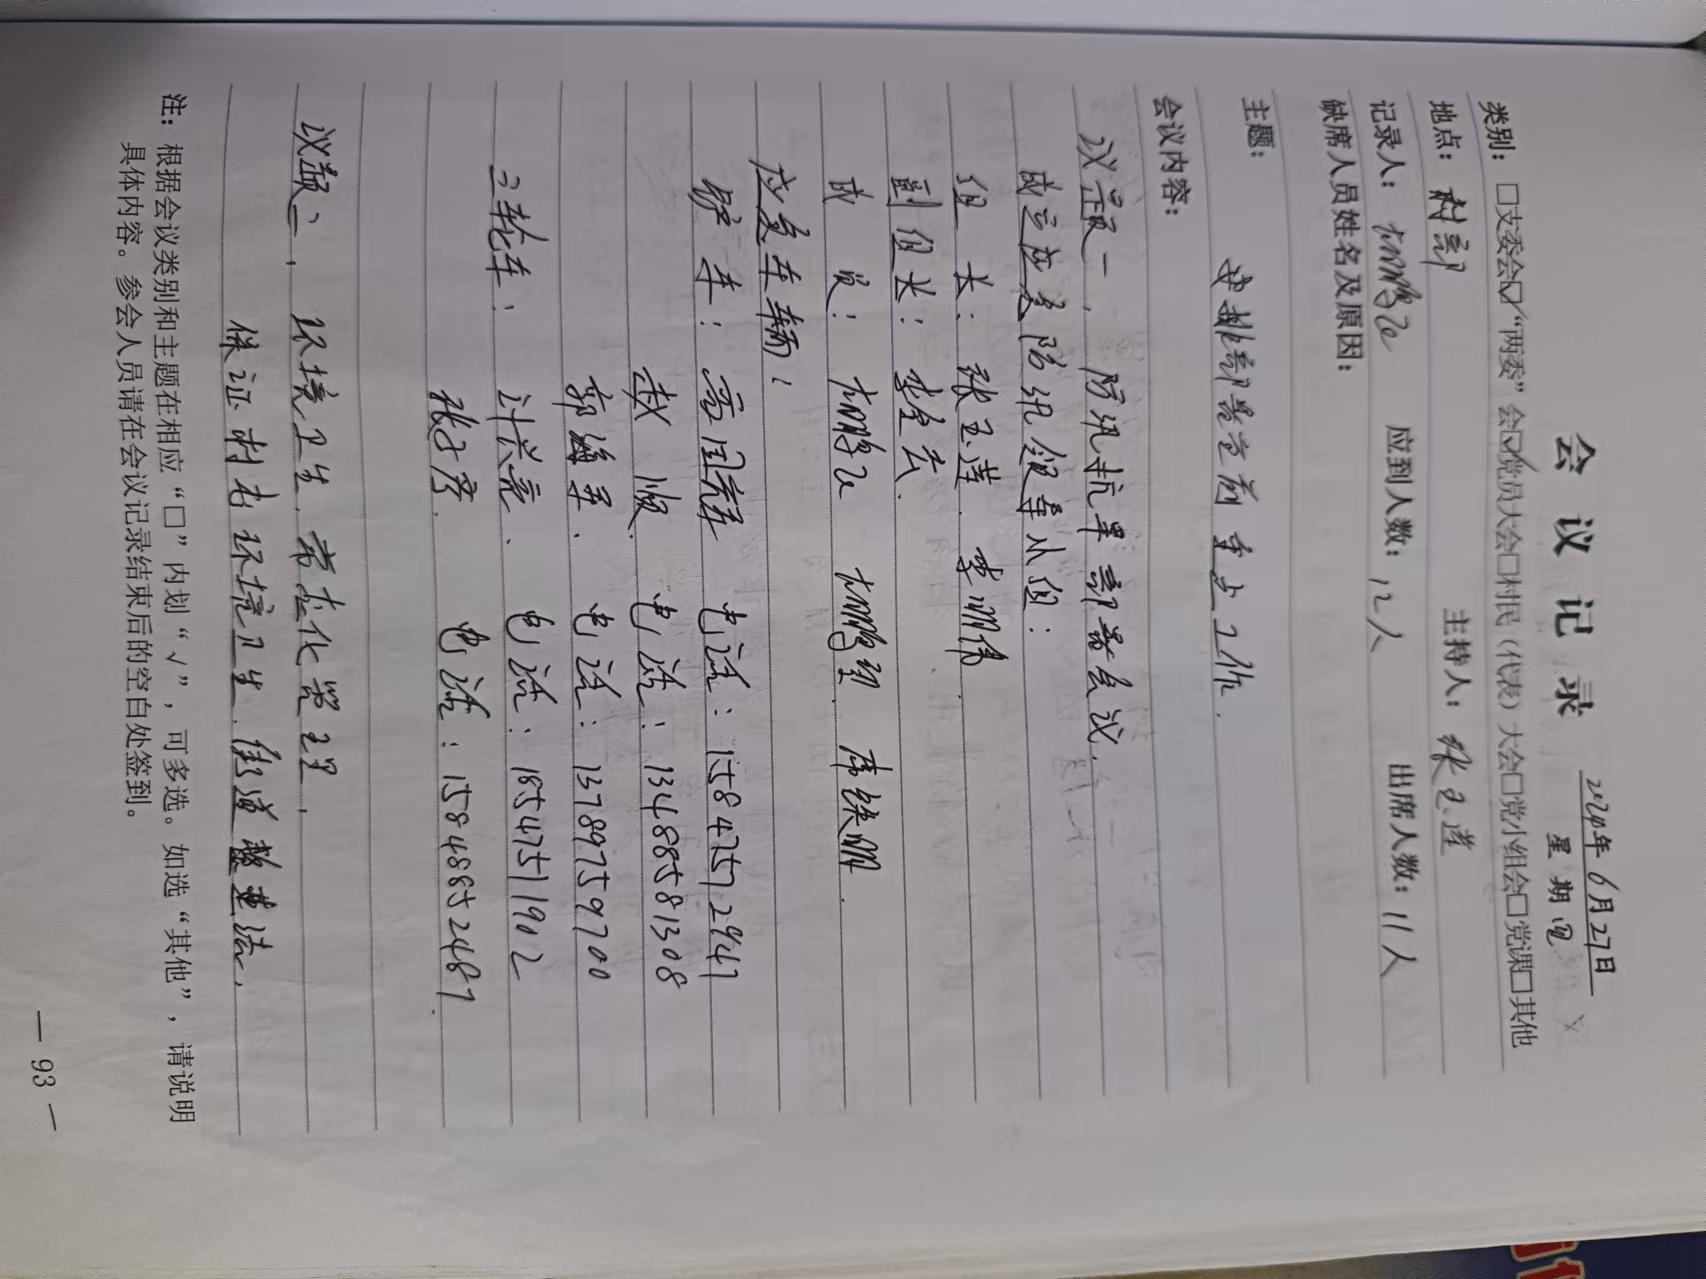 会议记录
2024年6月27日
星期四
类别：□支委会☑“两委”会☑党员大会□村民（代表）大会□党小组会□党课□其他
地点：村部 主持人：张玉莲
记录人： 应到人数：12人 出席人数：11人
缺席人员姓名及原因：
主题：安排部署当前重点工作.
会议内容：
议题一，防汛抗旱部署会议.
成立应急防汛领导小组：
组 长：张玉莲. 李鹏伟.
副组长：
成 员：
应急车辆：
铲 车： 电话：15847572947
赵 顺. 电话：13488581308
郭海军. 电话：13789759700
三轮车：计兴亮、 电话：18547511902
张子彦. 电话：15848852487.
议题二，环境卫生.常态化管理，
保证村内环境卫生.街道整洁.
注：根据会议类别和主题在相应“□”内划“√”，可多选。如选“其他”，请说明
具体内容。参会人员请在会议记录结束后的空白处签到。
— 93 —